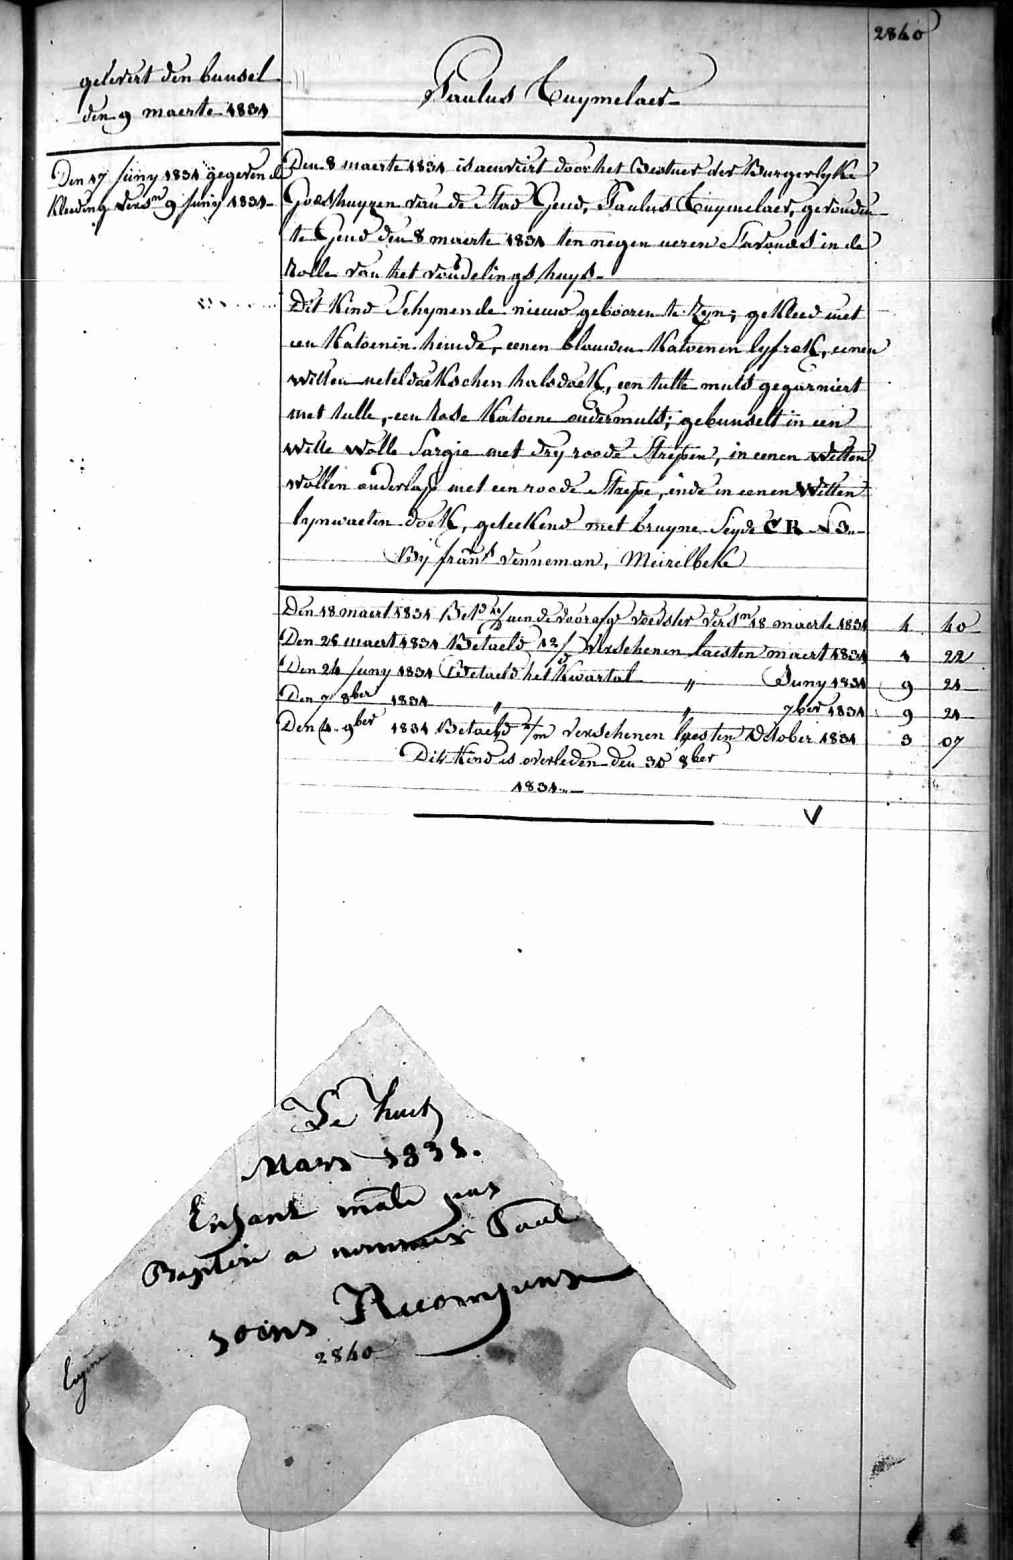 2840
gelevert den bunsel
den 9 maerte 1831
Paulus Tuymelaer
Den 17 Juny 1831 gegeven de
Kleeding vers.m 9 Juny 1831
Den 8 maerte 1831 is aenveirt door het Bestuer der Burgerlyke
Godshuyzen van de Stad Gend, Paulus Tuymelaer, gevonden
te Gend den 8 maerte 1831 ten negen ueren S'avonds in de
Rolle van het vondelingshuys
Dit Kind Schynende nieuw gebooren te Zyn; gekleed met
een Katoenen hemde, eenen blauwen Katoenen lyfrok, eenen
Witten neteldoekschen halsdoek, een tulle muts gegarniert
met tulle, een Rose Katoene ondermuts; gebunselt in een
Witte Wolle Sargie met dry roode Strepen, in eenen Witten
Wollen onderlap met een roode Strepe, ende in eenen Witten
lynwaeten doek, geteekend met bruyne Seyde C R
By frans Venneman, Meirelbeke
Den 18 maert 1831 Bet. aen de voorafg voedster vers.m 18 maerte 1831 4 40
Den 28 maert 1831 Betaeld 12/ Verschenen laesten maert 1831 1 22
Den 24 Juny 1831 Betaeld het Kwartal " Juny 1831 9 21
Den 7 8ber 1831 " " 7ber 1831 9 21
Den 4 9ber 1831 Betaeld 1/m verschenen lesten October 1831 3 07
Dit Kind is overleden den 31 8ber
1831
Le huit
Mars 1831.
Enfant mâle pas
Baptisé a nommer Paul
soins Recompense
2840
Eugene